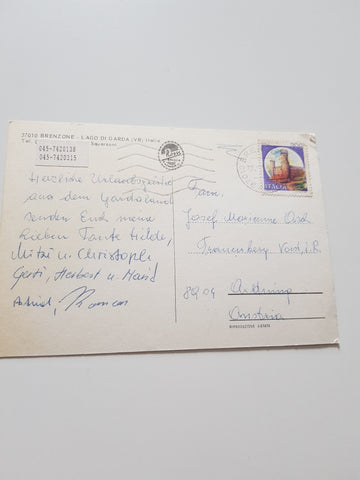 37010 BRENZONE - LAGO DI GARDA (VR) Italia
Tel.
045-7420138
045-7420315
Herzliche Urlaubsgrüße
aus dem Gardaland
senden Euch meine
lieben Tante Hilde,
Mitzi u. Christoph
Gerti, Herbert u.
Astrid, Roman
ITALIA
Fam.
Josef Marianne
8904
Austria
RIPRODUZIONE VIETATA